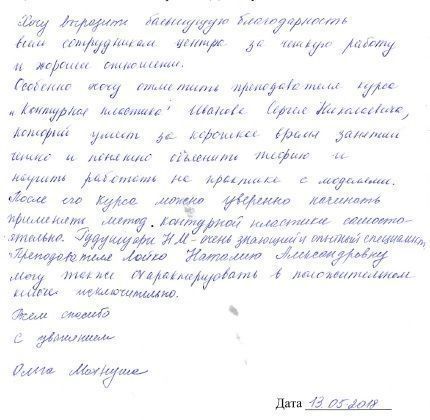 Хочу выразить благодарность
всем сотрудникам центра за четкую работу
и хорошее отношение.
Особенно хочу отметить преподавателя курса
"Контурная пластика" Иванова Сергея Николаевича,
который умеет за короткое время занятий
четко и понятно объяснить теорию и
научить работать на практике с моделями.
После его курса можно уверенно начинать
применять метод контурной пластики самосто-
ятельно. Н.М - очень знающий и опытный специалист.
Преподавателя Лойко Наталию Александровну
могу также охарактеризовать в положительном
ключе исключительно.
Всем спасибо
с уважением
Ольга
Дата 13.05.2018